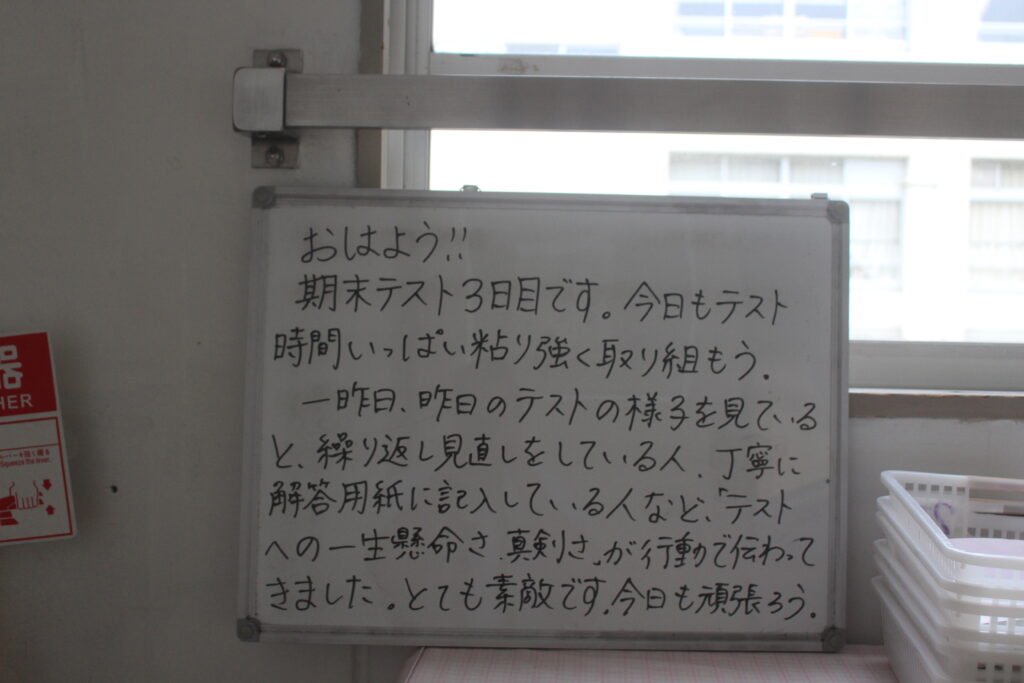 おはよう!!
期末テスト3日目です。今日もテスト
時間いっぱい粘り強く取り組もう。
一昨日、昨日のテストの様子を見ている
と、繰り返し見直しをしている人、丁寧に
解答用紙に記入している人など、「テスト
への一生懸命さ、真剣さ」が行動で伝わって
きました。とても素敵です。今日も頑張ろう。
器
HER
レバーを強く握る
Squeeze the lever.